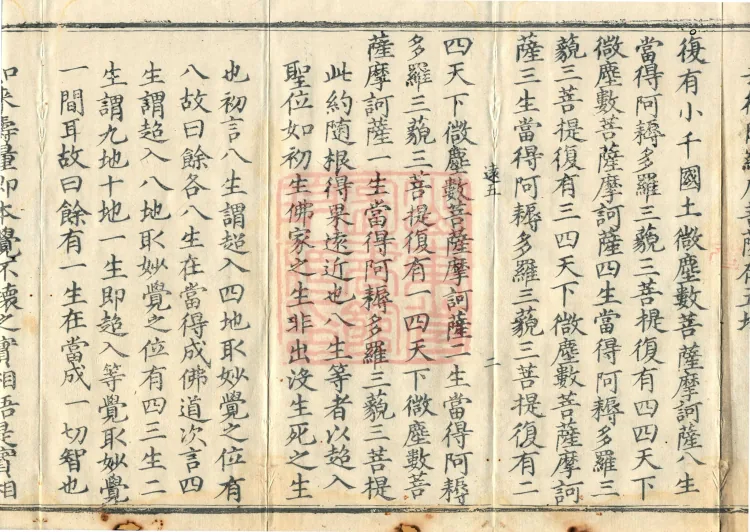 復有小千國土微塵數菩薩摩訶薩八生
當得阿耨多羅三藐三菩提復有四四天下
微塵數菩薩摩訶薩四生當得阿耨多羅三
藐三菩提復有三四天下微塵數菩薩摩訶
薩三生當得阿耨多羅三藐三菩提復有二
遠五 二
四天下微塵數菩薩摩訶薩二生當得阿耨
多羅三藐三菩提復有一四天下微塵數菩
薩摩訶薩一生當得阿耨多羅三藐三菩提
此約隨根得果遠近也八生等者以超入
聖位如初生佛家之生非出沒生死之生
也初言八生謂超入四地取妙覺之位有
八故曰餘各八生在當得成佛道次言四
生謂超入八地取妙覺之位有四三生二
生謂九地十地一生即超入等覺取妙覺
一間耳故曰餘有一生在當成一切智也
如來壽量即本覺不壞之實相悟是實相